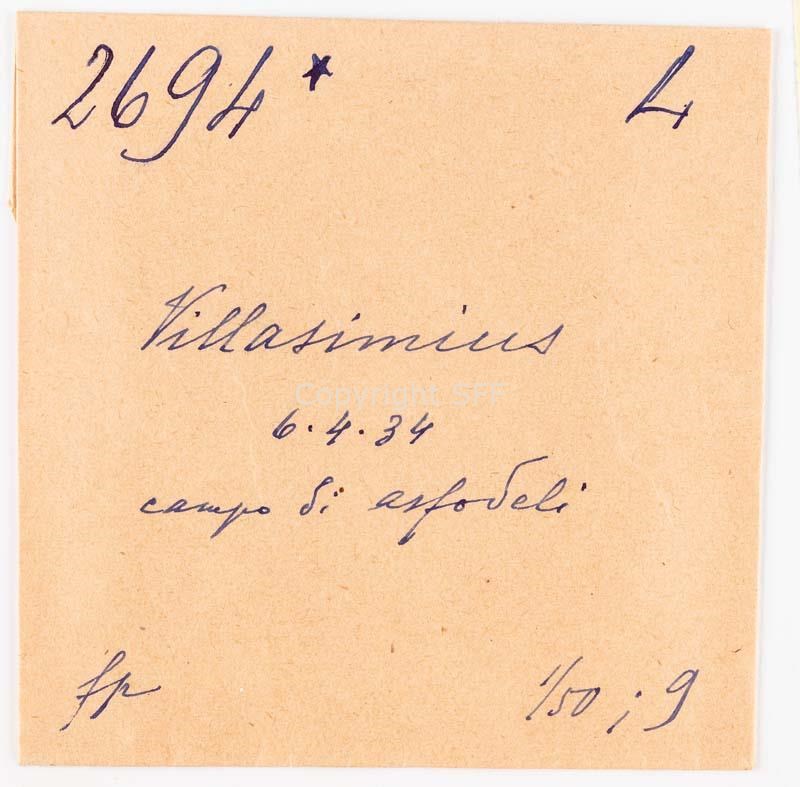 2694* L
Villasimius
Copyright SFF
6.4.34
campo di asfodeli
fp 1/50 ; 9